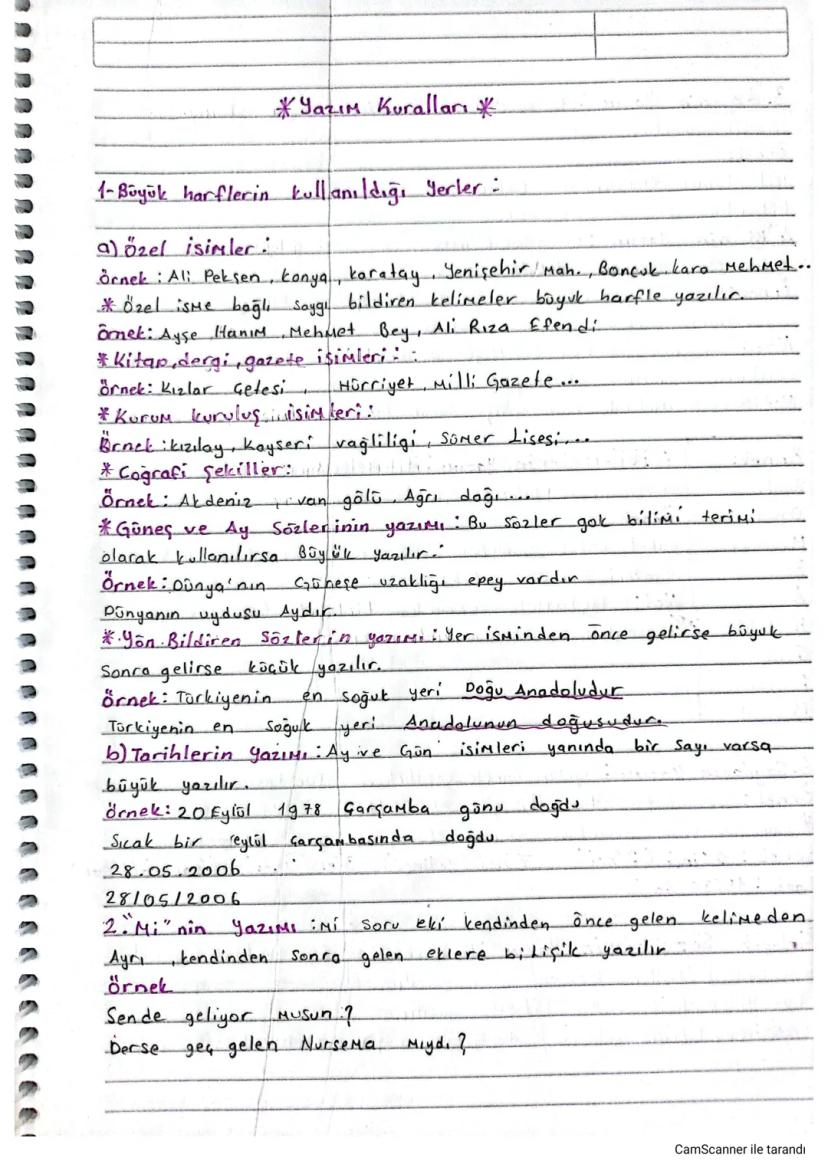 * Yazım Kuralları *
1- Büyük harflerin kullanıldığı yerler :
a) Özel isimler :
Örnek : Ali Pekşen, konya, karatay, Yenişehir Mah., Boncuk, kara Mehmet..
* Özel isme bağlı saygı bildiren kelimeler büyük harfle yazılır.
Örnek: Ayşe Hanım, Mehmet Bey, Ali Rıza Efendi
* Kitap, dergi, gazete isimleri :
Örnek: Kızlar Çetesi, Hürriyet, Milli Gazete...
* Kurum kuruluş isimleri :
Örnek : kızılay, Kayseri vağliligi, Sümer Lisesi...
* Coğrafi Şekiller:
Örnek : Akdeniz, van gölü, Ağrı dağı...
* Güneş ve Ay Sözlerinin yazımı : Bu sözler gök bilimi terimi
olarak kullanılırsa Büyük yazılır.
Örnek : Dünya'nın Güneşe uzaklığı epey vardır
Dünyanın uydusu Aydır.
* Yön Bildiren Sözlerin yazımı : Yer isminden önce gelirse büyük
Sonra gelirse küçük yazılır.
Örnek : Türkiyenin en soğuk yeri Doğu Anadoludur
Türkiyenin en soğuk yeri Anadolunun doğusudur.
b) Tarihlerin Yazımı : Ay ve Gün isimleri yanında bir sayı varsa
büyük yazılır.
Örnek: 20 Eylül 1978 Çarşamba günü doğdu
Sıcak bir eylül çarşambasında doğdu
28.05.2006
28/05/2006
2. "Mi" nin Yazımı : Mi soru eki kendinden önce gelen kelimeden
Ayrı, kendinden sonra gelen eklere bitişik yazılır
Örnek
Sende geliyor musun ?
Derse geç gelen Nursema mıydı ?
CamScanner ile tarandı